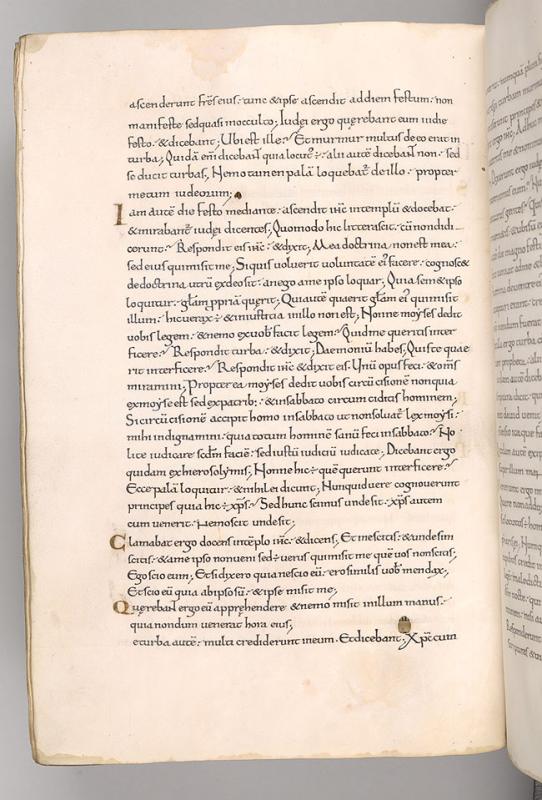 ascenderunt fr̄es eius. tunc & ipse ascendit ad diem festum. non
manifeste sed quasi in occulto; Iudei ergo querebant eum in die
festo. & dicebant; Ubi est ille? Et murmur multus de eo erat in
turba; Quidā eni dicebant quia locut;
se ducit turbas; Nemo tamen palā loquebat̄ de illo. propter
metum iudeorum;
Iam autē die festo mediante. ascendit ihc in templū & docebat.
& mirabant̄ iudei dicentes; Quomodo hic litteras cit. cū non didi
cerunt? Respondit eis ihc. & dixit; Mea doctrina non est mea.
sed eius qui misit me; Siquis voluerit voluntatē ei; facere. cognosc&
de doctrina utrū ex deo sit. an ego a me ipso loquar; Qui a sem&ipso
loquitur. gl̄am ppriā querit; Qui autē quaerit gl̄am ei; qui misit
illum. hic verax ÷. & iniustitia in illo non est; Nonne moyses dedit
vobis legem. & nemo ex vob' facit legem? Quid me queritis inter
ficere? Respondit turba. & dixit; Daemoniū habes; Quis te quae
rit interficere? Respondit ihc & dixit eis. Unū opus feci. & om̄s
miramini; Propterea moyses dedit vobis circūcisionē non quia
ex moyse est sed ex patrib;. & in sabbato circumciditis hominem;
Si circūcisionē accipit homo in sabbato ut non solvat̄ lex moysi.
mihi indignamini. quia totum hominē sanū feci in sabbato? No
lite iudicare scdm faciē. sed iustū iudiciū iudicate; Dicebant ergo
quidam ex hierosolymis; Nonne hic ÷ quē querunt interficere?
Ecce palā loquitur. & nihil ei dicunt; Nunquid vere cognoverunt
principes quia hic ÷ xp̄s? Sed hunc scimus unde sit. xp̄s autem
cum venerit. nemo scit unde sit;
Clamabat ergo docens in tēplo ihc. & dicens; Et me scitis. & unde sim
scitis. & a me ipso non veni sed ÷ verus qui misit me quē vos nonscitis;
Ego scio eum; Et si dixero quia nescio eū. ero similis vob' mendax;
Et scio eū quia ab ipso sū. & ipse misit me;
Querebant ergo eū apprehendere & nemo misit in illum manus.
quia nondum venerat hora eius;
e turba autē. multi crediderunt in eum. Et dicebant; Xp̄c cum